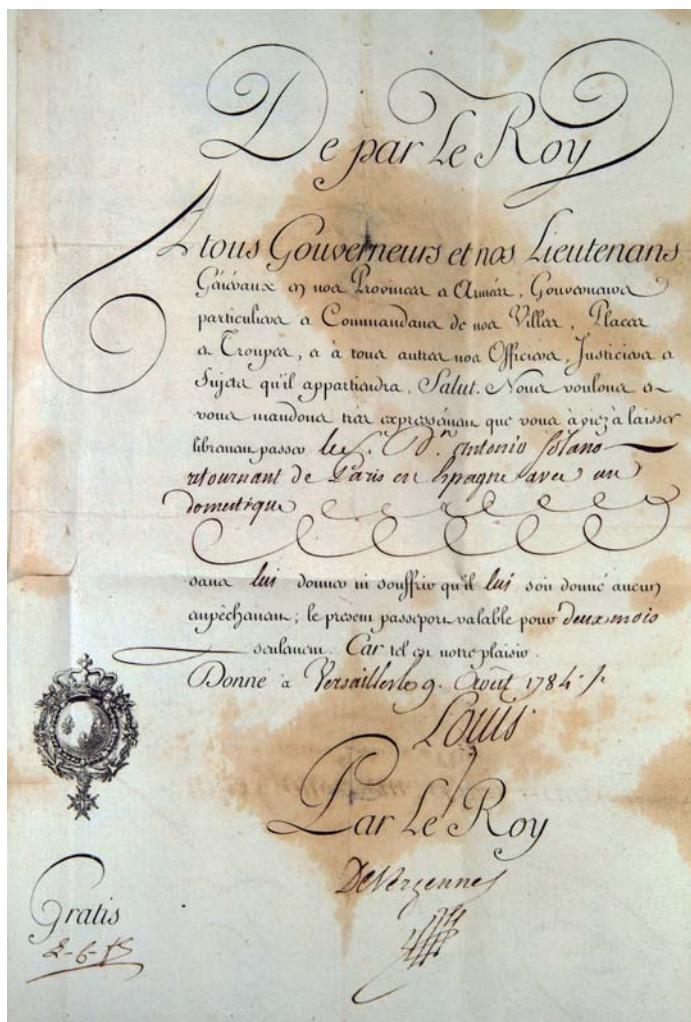 De par Le Roy
A tous Gouverneurs et nos Lieutenans
Généraux en nos Provinces et Armées, Gouverneurs
particuliers et Commandans de nos Villes, Places
et Troupes, et à tous autres nos Officiers, Justiciers et
Sujets qu'il appartiendra, Salut. Nous voulons et
vous mandons très expressément que vous àyiez à laisser
librement passer le S. Dn. Antonio Solano
retournant de Paris en Espagne avec un
domestique
sans lui donner ni souffrir qu'il lui soit donné aucun
empêchement; le présent passeport valable pour deux mois
seulement. Car tel est notre plaisir.
Donné à Versailles le 9. Août 1784.
Louis
Par Le Roy
De Vergennes
Gratis